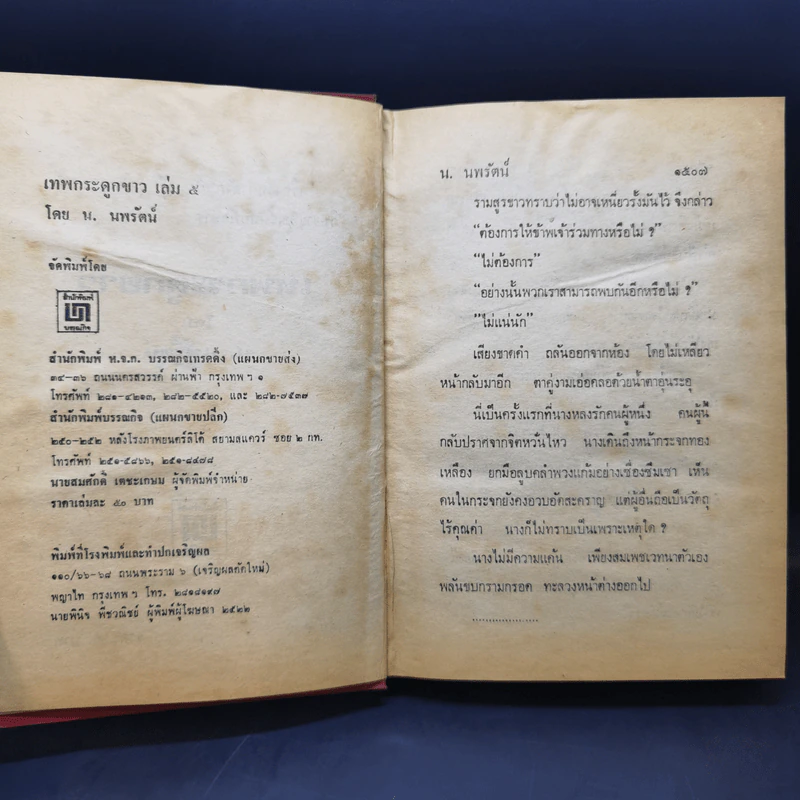 เทพกระดูกขาว เล่ม ๕
โดย น. นพรัตน์
จัดพิมพ์โดย
สำนักพิมพ์
บรรณกิจ
สำนักพิมพ์ ห.จ.ก. บรรณกิจเทรดดิ้ง (แผนกขายส่ง)
๓๔-๓๖ ถนนนครสวรรค์ ผ่านฟ้า กรุงเทพฯ ๑
โทรศัพท์ ๒๘๑-๔๒๑๓, ๒๘๒-๕๕๒๐, และ ๒๘๒-๗๕๓๗
สำนักพิมพ์บรรณกิจ (แผนกขายปลีก)
๒๕๐-๒๕๒ หลังโรงภาพยนตร์ลิโด้ สยามสแควร์ ซอย ๒ กท.
โทรศัพท์ ๒๕๑-๕๘๖๖, ๒๕๑-๘๔๗๘
นายสมศักดิ์ เตชะเกษม ผู้จัดพิมพ์จำหน่าย
ราคาเล่มละ ๕๐ บาท
พิมพ์ที่โรงพิมพ์และทำปกเจริญผล
๑๑๐/๖๖-๖๘ ถนนพระราม ๖ (เจริญผลตัดใหม่)
พญาไท กรุงเทพฯ โทร. ๒๘๑๘๑๙๗
นายพินิจ พืชวณิชย์ ผู้พิมพ์ผู้โฆษณา ๒๕๒๒
น. นพรัตน์ ๑๕๐๗
รามสูรขาวทราบว่าไม่อาจเหนี่ยวรั้งมันไว้ จึงกล่าว
“ต้องการให้ข้าพเจ้าร่วมทางหรือไม่ ?”
“ไม่ต้องการ”
“อย่างนั้นพวกเราสามารถพบกันอีกหรือไม่ ?”
“ไม่แน่นัก”
เสียงขาดคำ ถลันออกจากห้อง โดยไม่เหลียว
หน้ากลับมาอีก ตาคู่งามเอ่อคลอด้วยน้ำตาอุ่นระอุ
นี่เป็นครั้งแรกที่นางหลงรักคนผู้หนึ่ง คนผู้นี้
กลับปราศจากจิตหวั่นไหว นางเดินถึงหน้ากระจกทอง
เหลือง ยกมือลูบคลำพวงแก้มอย่างเชื่องซึมเซา เห็น
คนในกระจกยังคงอวบอัดสะคราญ แต่ผู้อื่นถือเป็นวัตถุ
ไร้คุณค่า นางก็ไม่ทราบเป็นเพราะเหตุใด ?
นางไม่มีความแค้น เพียงสมเพชเวทนาตัวเอง
พลันขบกรามกรอด ทะลวงหน้าต่างออกไป
......................